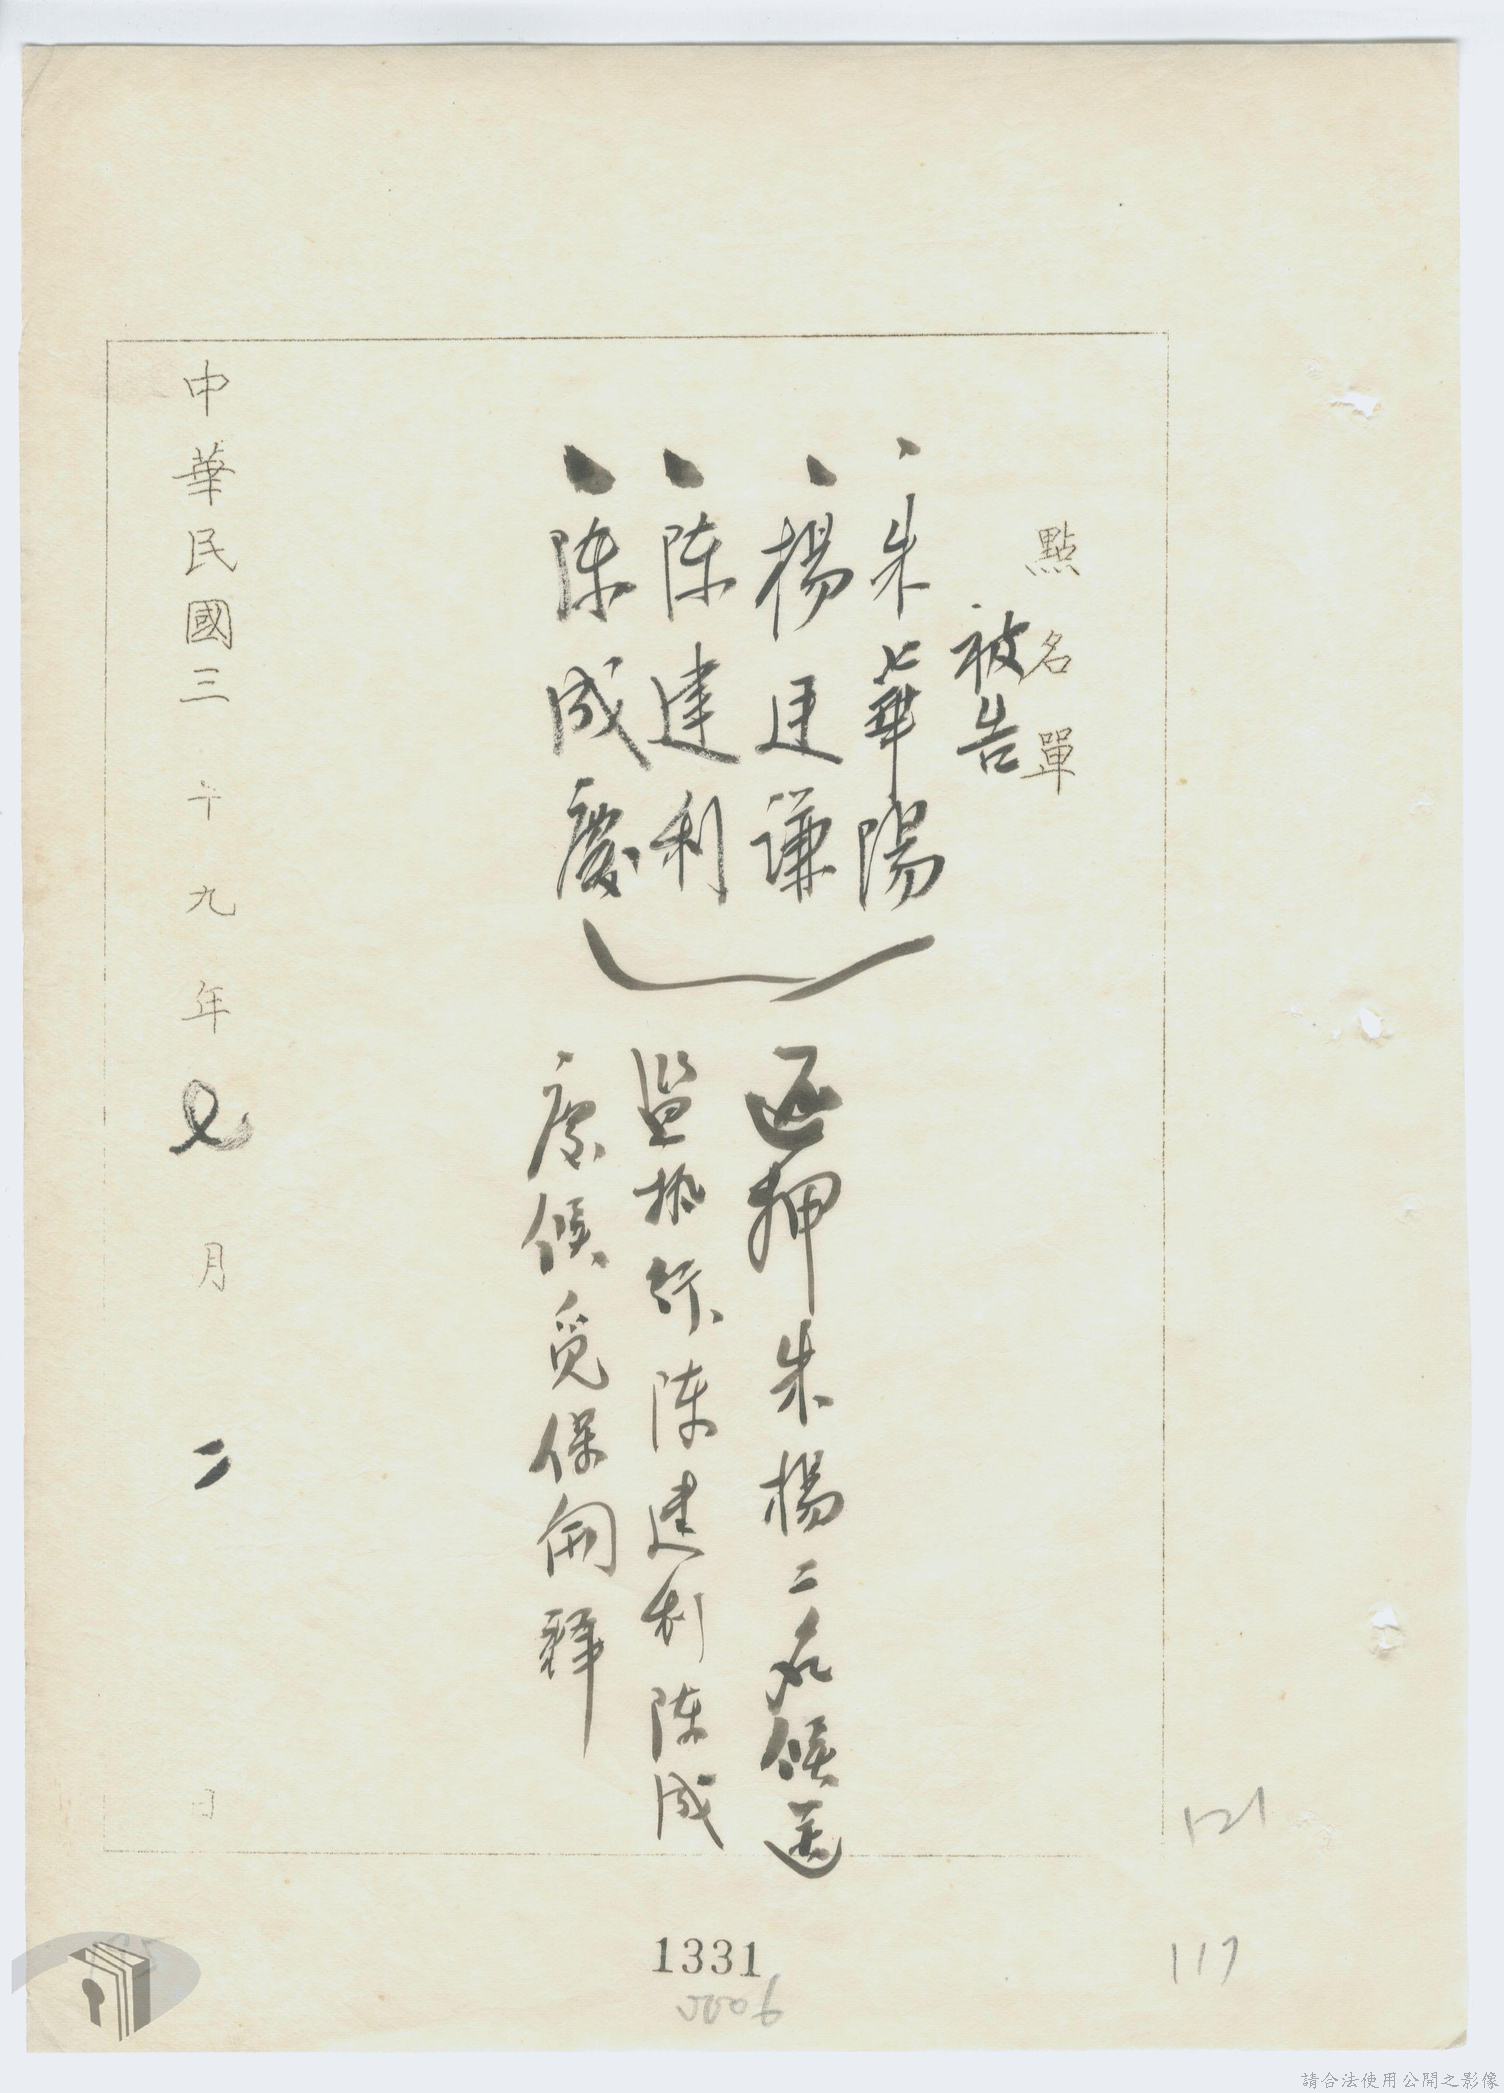 點名單
被告
朱華陽
楊廷謙
陳建利
陳成慶
還押朱楊二名候送
監執行陳建利陳成
慶候覓保開釋
中華民國三十九年七月二日
121
117
1331
請合法使用公開之影像